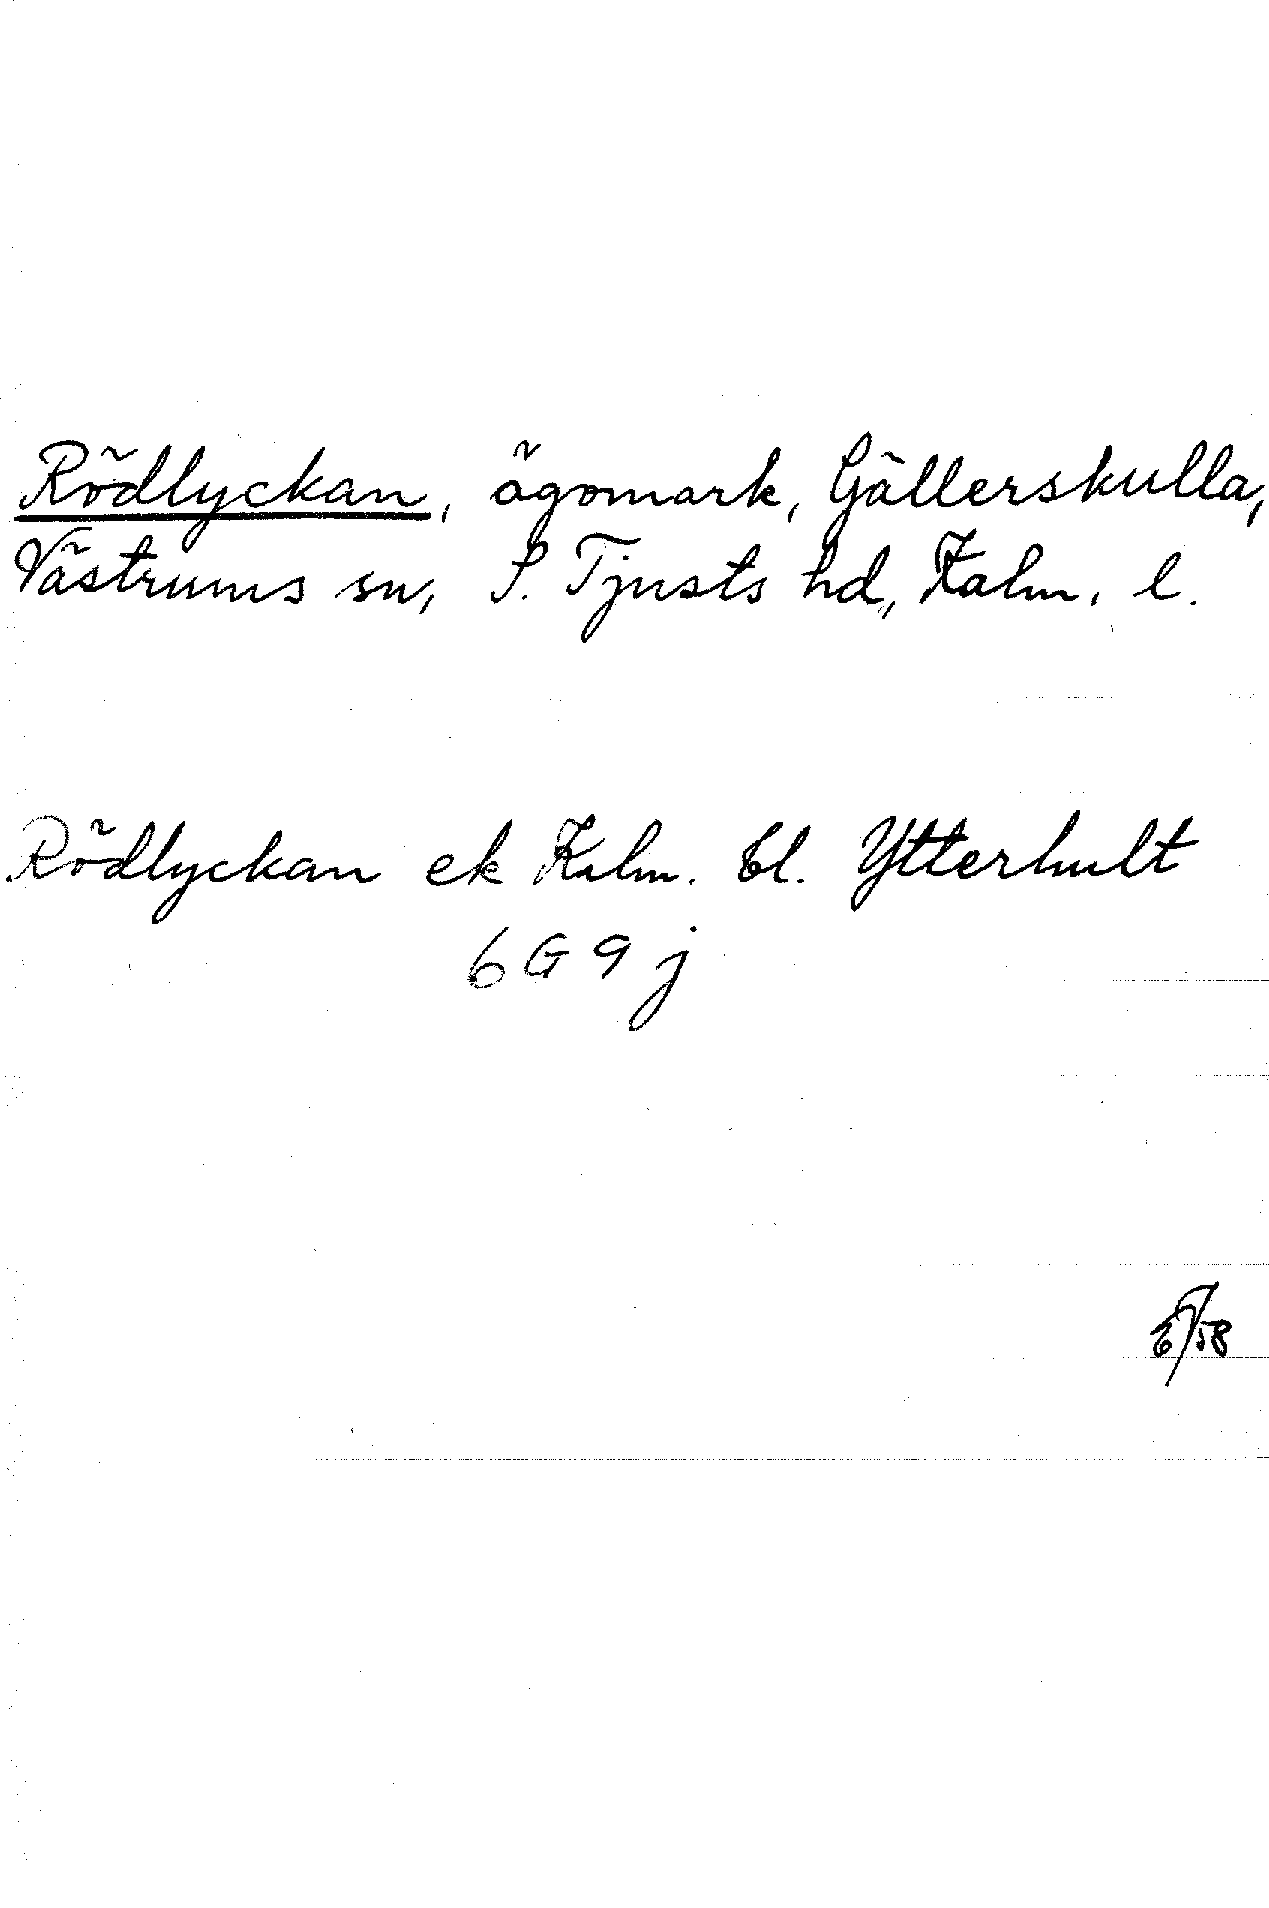 Rödlyckan, ägomark, Gällerskulla,
Västrums sn, S. Tjusts hd, Kalm. l.
Rödlyckan ek Kalm. bl. Ytterhult
6G9j